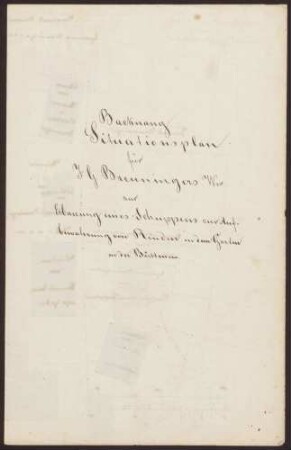 Backnang
Situationsplan
für
J G Breuningers Wwe
zur
Erbauung eines Schuppens zur Auf-
bewahrung von Rinden in dem Garten
in der